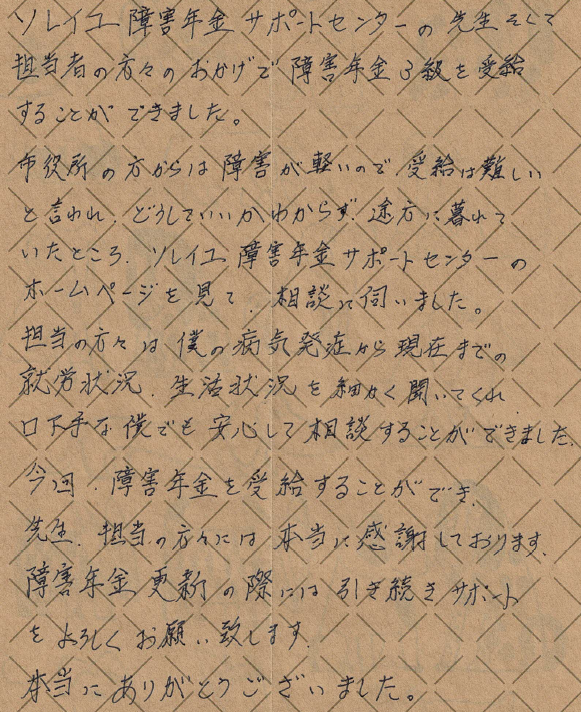 ソレイユ障害年金サポートセンターの先生そして
担当者の方々のおかげで障害年金3級を受給
することができました。
市役所の方からは障害が軽いので、受給は難しい
と言われ、どうしていいかわからず、途方に暮れて
いたところ、ソレイユ障害年金サポートセンターの
ホームページを見て、相談に伺いました。
担当の方々は僕の病気発症から現在までの
就労状況、生活状況を細かく聞いてくれ
口下手な僕でも安心して相談することができました。
今回、障害年金を受給することができ、
先生、担当の方々には本当に感謝しております。
障害年金更新の際には引き続きサポート
をよろしくお願い致します。
本当にありがとうございました。